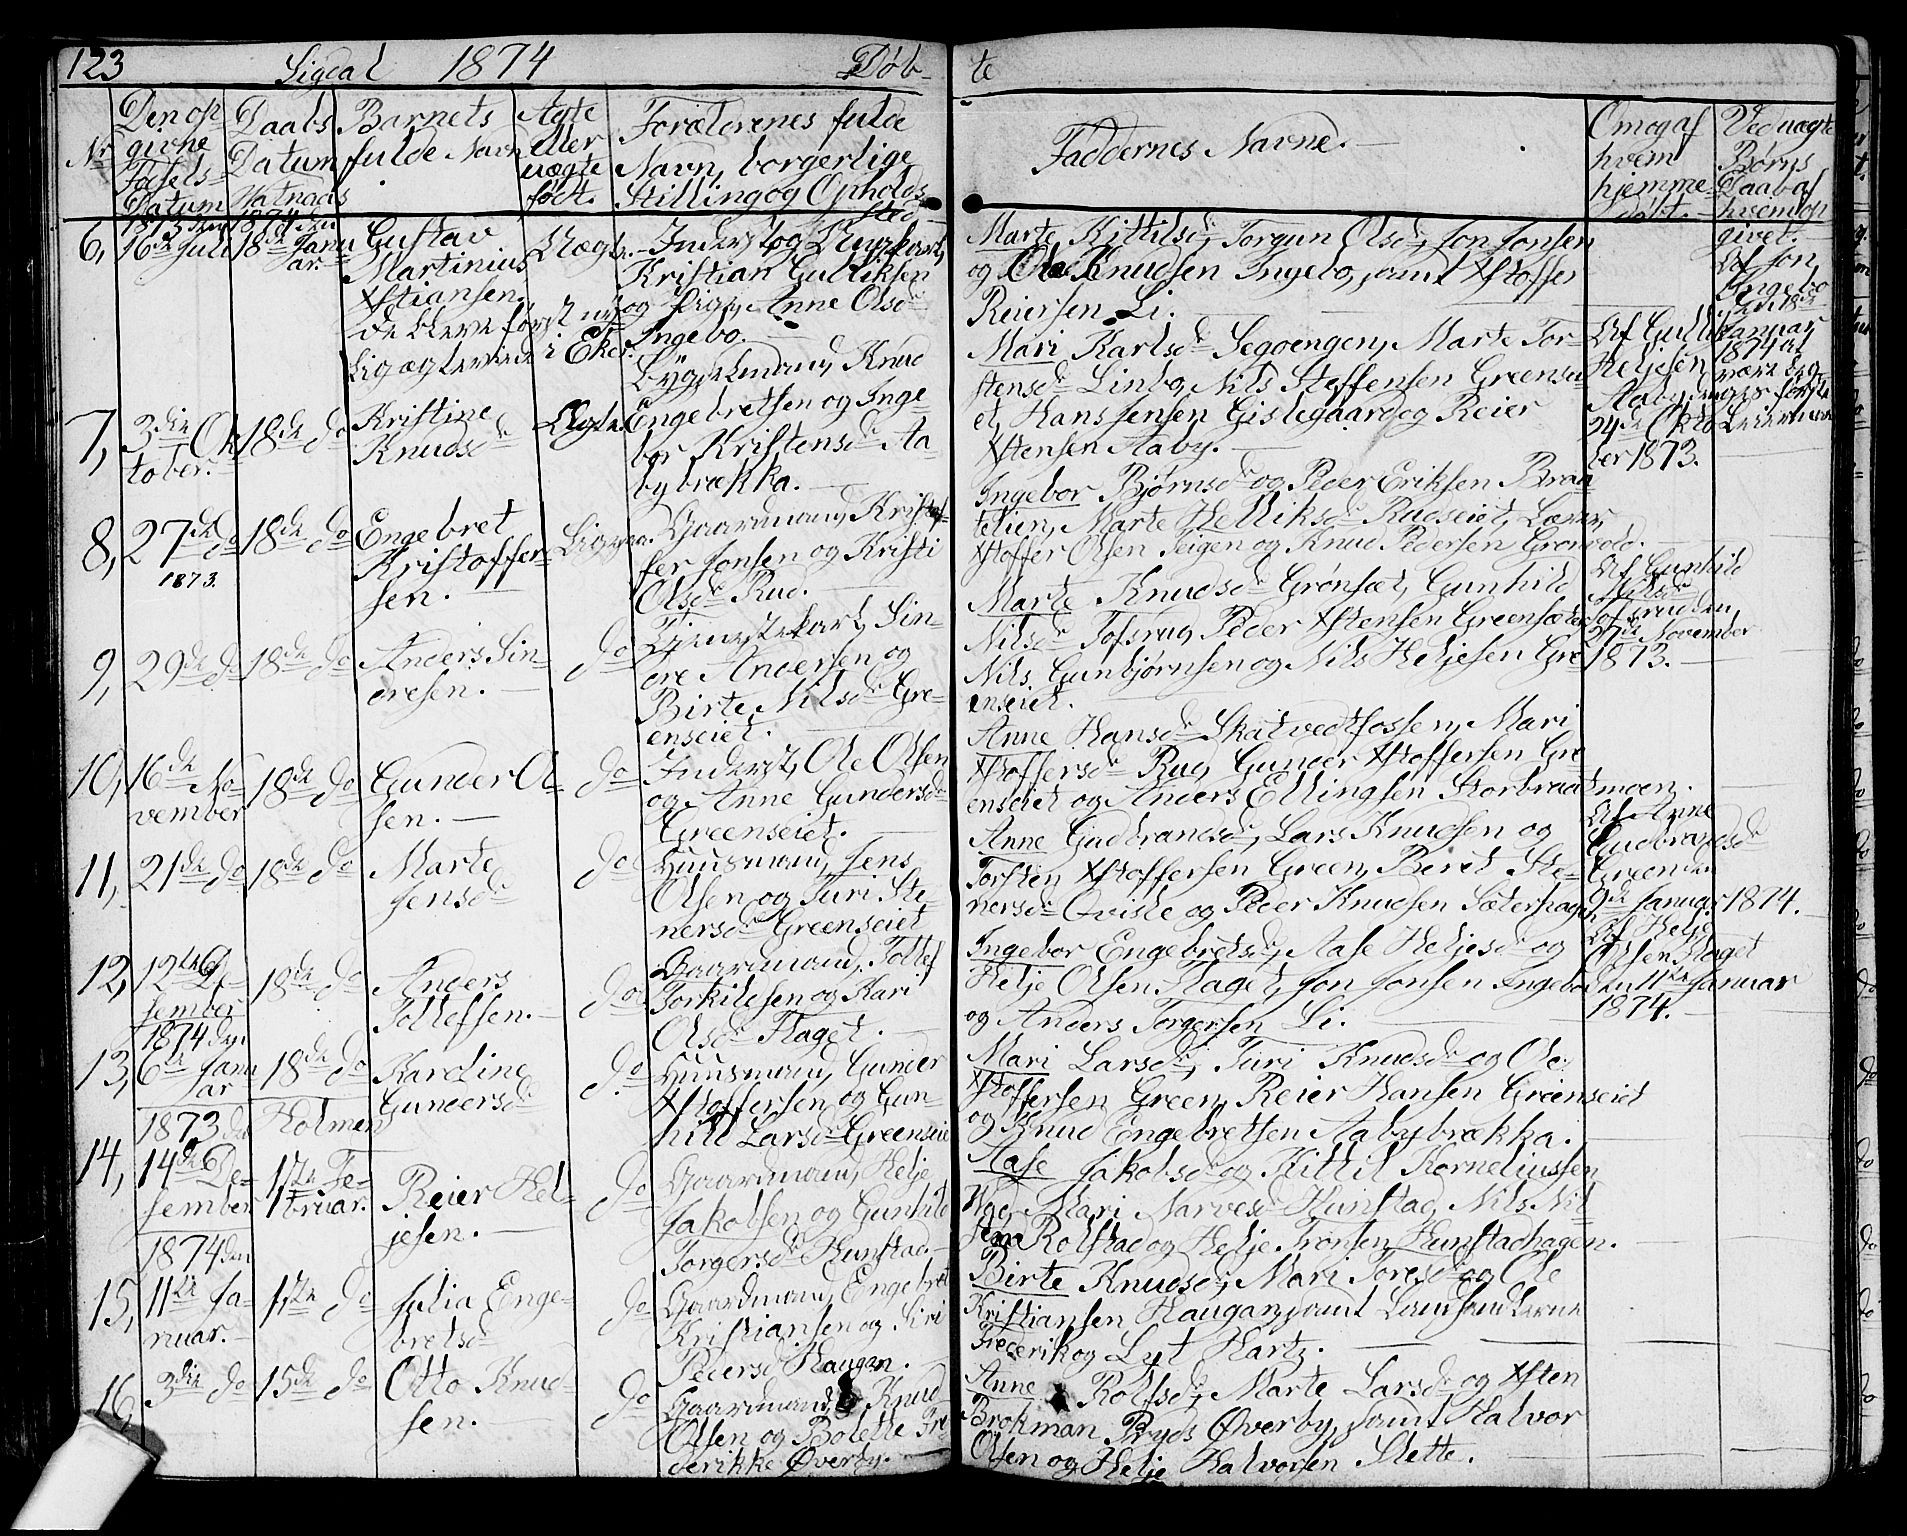 123 Sigdal 1874 Døb- te
Nr
Den op-
givne
Føsels-
Datum
Daabs
Datum
Barnets
fulde Navn
Ægte
eller
uægte
født.
Forældrenes fulde
Navn, borgerlige
Stilling og Opholds
sted
Faddernes Navne.
Om og af
hvem
hjemme-
døbt.
Ved uægte
Børns
Daab af
hvem op
givet.
6, 16de Juli 18de Janu
ar.
Gustav
Martinius
Xstiansen.
Inderst og
Kristian Gulliksen
og Pige, Anne Olsdr
Ingebo.
Marte Kittilsdr, Torgun Olsdr, Jon Jonsen
og Ole Knudsen Ingebo, samt Xstoffer
Reiersen Li.
Af Jon
Ingebo
den 18de
Januar
1874
7, 3die Ok
tober.
18de do
Kristine
Knudsdr
Ægte
Bygselmand, Knud
Engebretsen og Inge-
bor Kristensdr Aa
bybrækka.
Mari Karlsdr Segoengen, Marte Tor-
stensdr Linbo, Nils Steffensen Greensei
et, Hans Jensen Gislegaard og Reier
Xstensen Aaby.
Af Gulli
Heljesen
Aaby den
24de Okto
ber 1873.
8, 27de do
1873.
18de do
Engebret
Kristoffer-
sen.
Ligesaa.
Gaardmand, Kristof-
fer Jonsen og Kristi
Olsdr Rud.
Ingebor Bjørnsdr og Peder Eriksen Braa
telien, Marte Helliksdr Rudseiet, Lærer,
Xstoffer Olsen Teigen og Knud Pedersen Grønvold.
9, 29de do 18de do
Anders Sin-
dresen.
do
Tjenestekarl, Sin-
dre Andersen og
Birte Nilsdr Gre-
enseiet.
Marte Knudsdr Grønsæt, Gunhild
Nilsdr Tofsrud, Peder Xstensen Greensæter
Nils Gunbjørnsen og Nils Heljesen Gre
enseiet.
Af Gunhild
Nilsdr
Tofsrud den
27de November
1873.
10, 16de No-
vember
18de do
Gunder Ol-
sen.
do
Inderst, Ole Olsen
og Anne Gundersdr
Greenseiet.
Anne Hansdr Skatvedtfossen, Mari
Xstoffersdr Rud, Gunder Xstoffersen Gre
enseiet og Anders Ellingsen Storbraatmoen.
11, 21de do 18de do
Marte
Jensdr
do
Huusmand, Jens
Olsen og Turi Ste-
nersdr Greenseiet
Anne Gudbrandsdr, Lars Knudsen og
Torsten Xstoffersen Green, Beret Ste-
nersdr Qvisle og Peder Knudsen Sæterhagen
Af Anne
Gudbrandsdr
Green den
9de Januar 1874.
12, 12te De-
sember
18de do
Anders
Tollefsen.
do
Gaardmand, Tollef
Torkildsen og Kari
Olsdr Flaget.
Ingebor Engebretsdr, Aase Heljesdr og
Helje Olsen Flaget, Jon Jonsen Ingebo
og Anders Torgersen Li.
Af Helje
Olsen Flaget
den 11te Januar
1874.
1874 den
13, 6te Janu
ar
18de do
Karoline
Gundersdr
do
Huusmand, Gunder
Xstoffersen og Gun-
hild Larsdr Greenseie
Mari Larsdr, Turi Knudsdr og Ole
Xstoffersen Green, Reier Hansen Greenseiet
og Knud Engebretsen Aabybrækka.
1873 den
Holmen
14, 14de De-
sember
1ste Fe-
bruar.
Reier Hel-
jesen.
do
Gaardmand, Helje
Jakobsen og Gunhild
Torgersdr Hunstad.
Aase Jakobsdr og Kittil Korneliussen
Wad, Mari Narvesdr Hunstad, Nils Nil-
sen Rolstad og Helje Tronsen Hunstadhagen.
1874 den
15, 11te Ja-
nuar.
1ste do
Julia Enge-
bretsdr
do
Gaardmand, Engebret
Kristiansen og Siri
Pedersdr Haugan.
Birte Knudsdr, Mari Toresdr og Ole
Kristiansen Haugan, samt Landhandlerne
Frederik og Lyt Hartz.
16, 3die do 15de do
Otto Knud-
sen.
do
Gaardmand, Knud
Olsen og Bolette Fre
derikke Øverby.
Anne Rolfsdr, Marte Larsdr og Xsten
Brokman Pryds Øverby, samt Halvor
Olsen og Helje Halvorsen Slette.